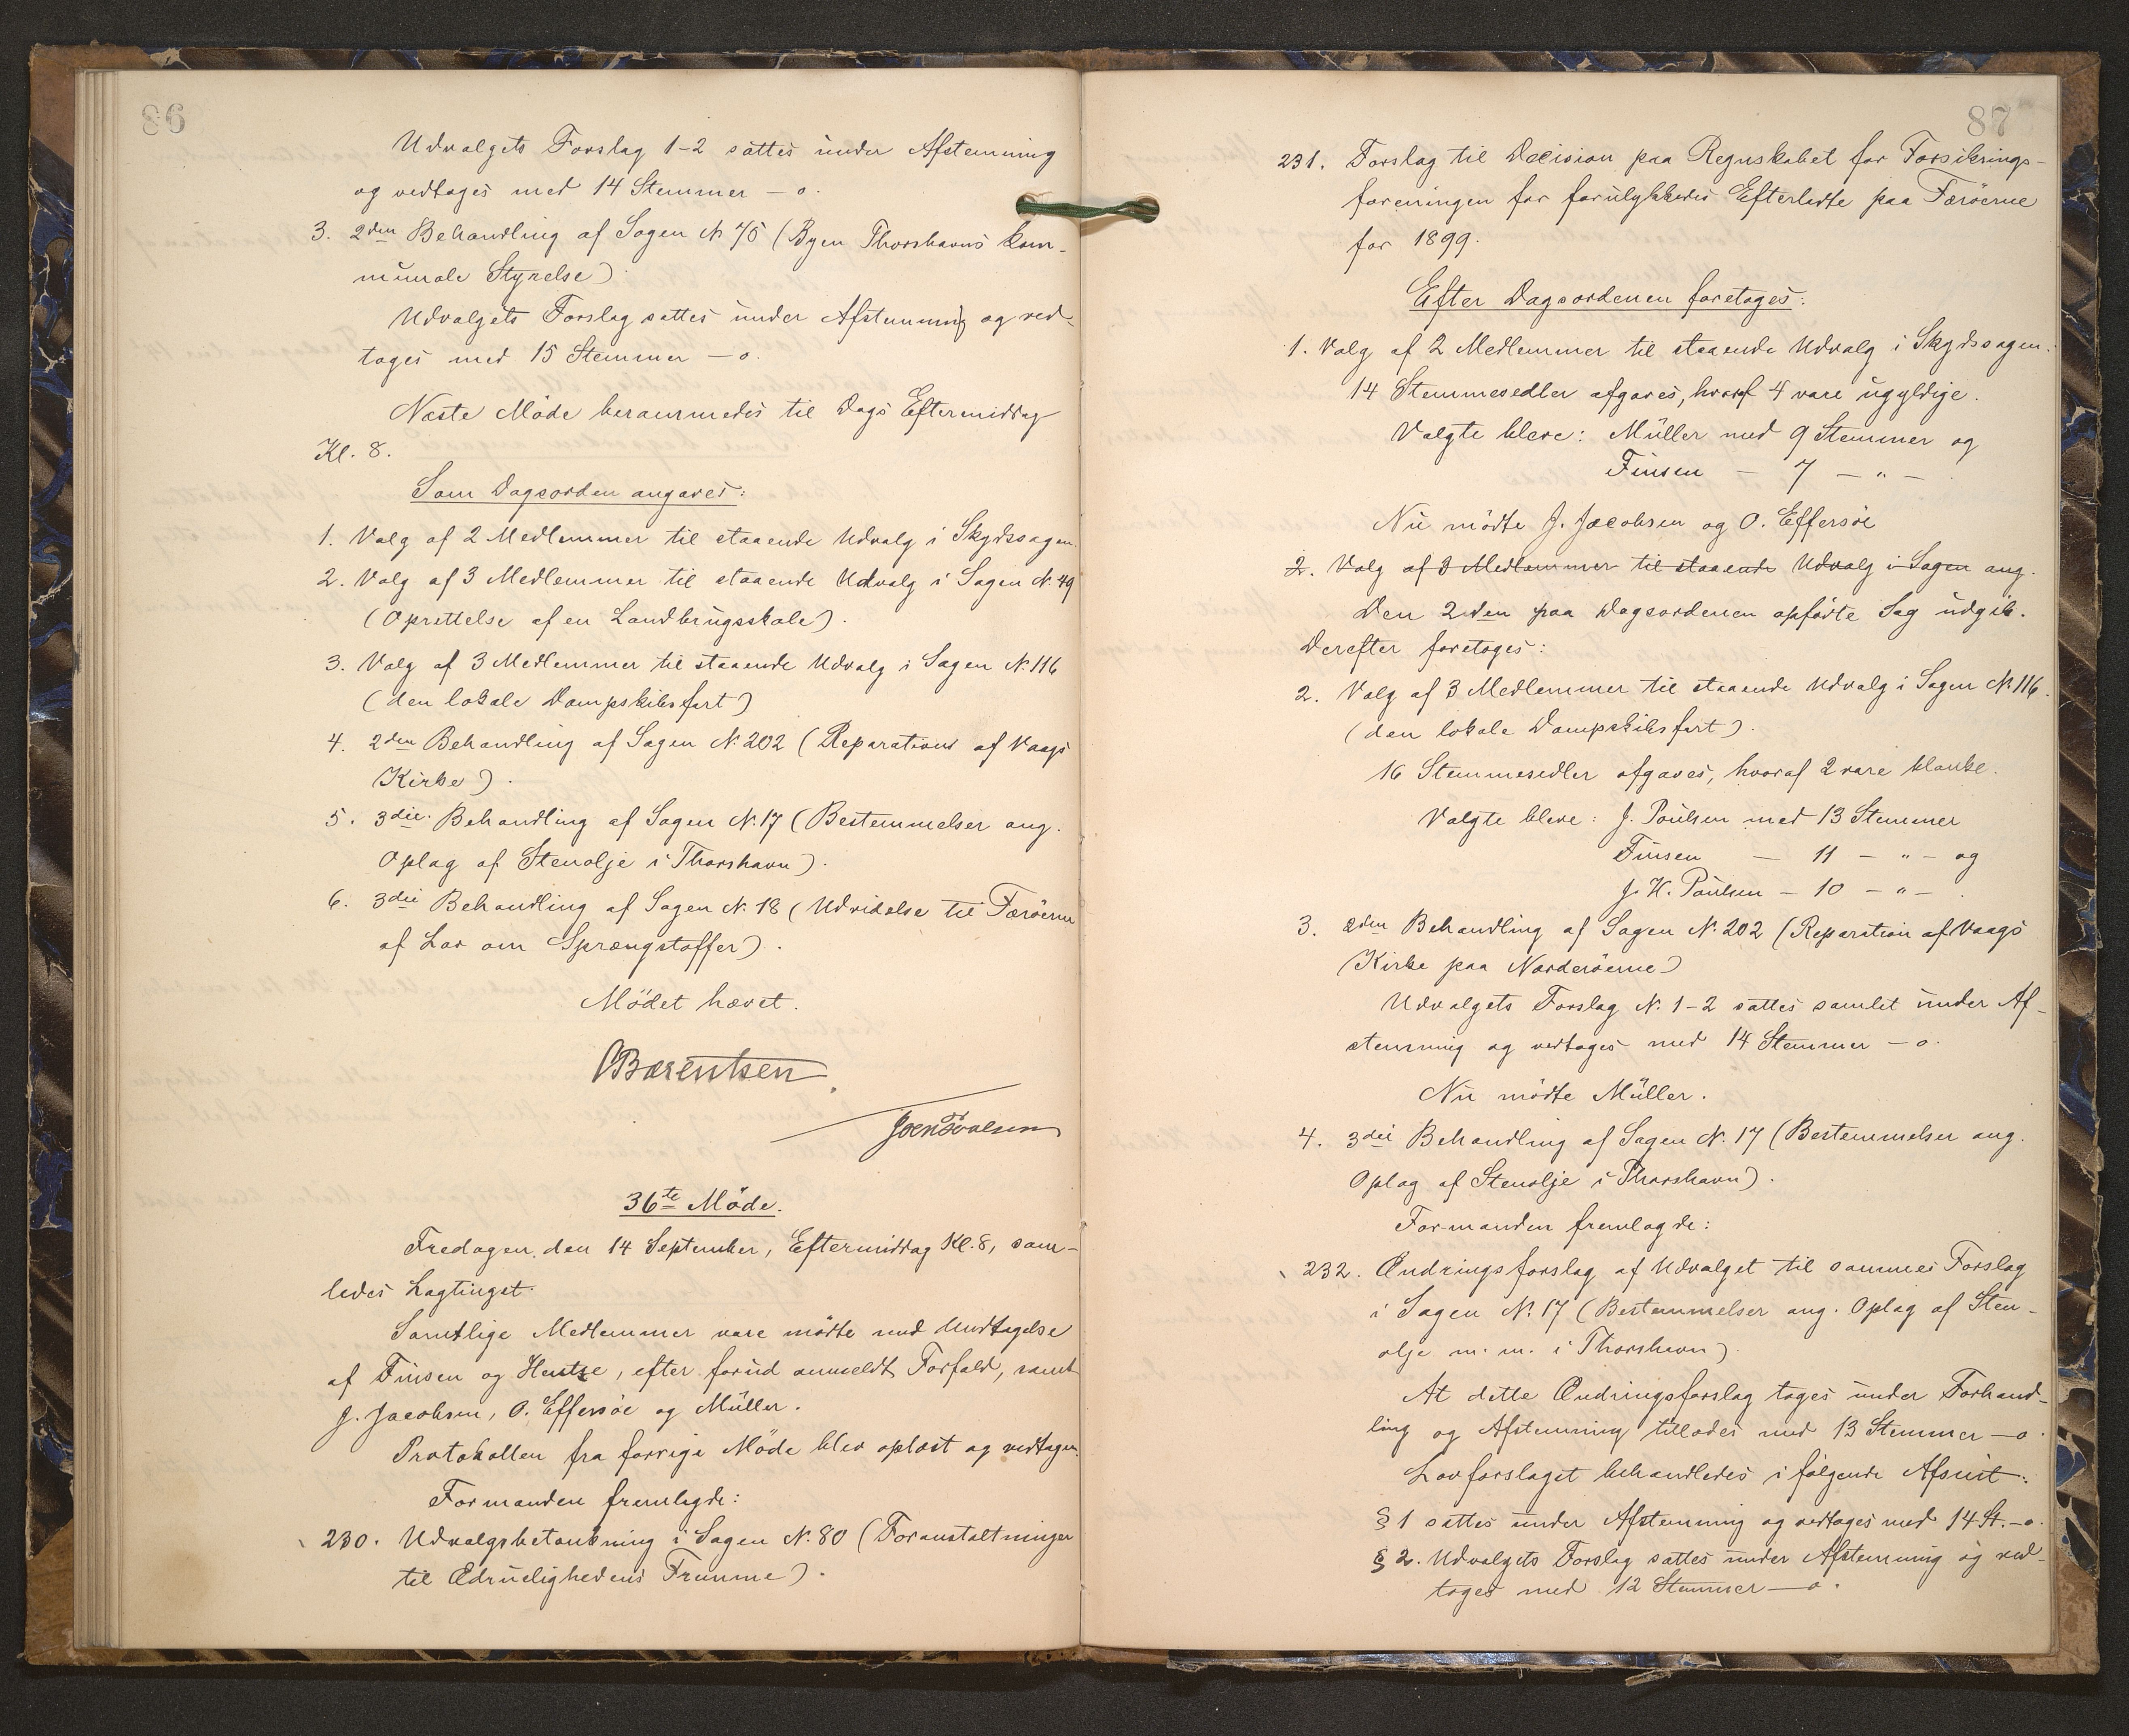 86
Udvalgets Forslag 1-2 sattes under Afstemning
og vedtoges med 14 Stemmer – o.
3. 2den Behandling af Sagen N. 75 (Byen Thorshavns kom-
munale Styrelse)
Udvalgets Forslag sattes under Afstemning og ved-
toges med 15 Stemmer – o.
Næste Möde berammedes til Dags Eftermiddag
Kl. 8.
Som Dagsorden angaves:
1. Valg af 2 Medlemmer til staaende Udvalg i Skydssagen.
2. Valg af 3 Medlemmer til staaende Udvalg i Sagen N. 49
(Oprettelse af en Landbrugsskole).
3. Valg af 3 Medlemmer til staaende Udvalg i Sagen N. 116
(den lokale Dampskibsfart)
4. 2den Behandling af Sagen N. 202 (Reparation af Vaags
Kirke).
5. 3die Behandling af Sagen N. 17 (Bestemmelser ang.
Oplag af Stenolje i Thorshavn).
6. 3die Behandling af Sagen N. 18 (Udvidelse til Færöerne
af Lov om Sprængstoffer).
Mödet hævet.
OBærentsen
36te Möde.
Fredagen den 14 September, Eftermiddag Kl. 8, sam-
ledes Lagtinget.
Samtlige Medlemmer vare mödte med Undtagelse
af Finsen og Hentze, efter forud anmeldt Forfald, samt
J. Jacobsen, O. Effersöe og Müller.
Protokollen fra forrige Möde blev oplæst og vedtagen.
Formanden fremlagde:
230. Udvalgsbetænkning i Sagen N. 80 (Foranstaltninger
til Ædruelighedens Fremme).
87
231. Forslag til Decision paa Regnskabet for Forsikrings-
foreningen for forulykkedes Efterladte paa Færöerne
for 1899.
Efter Dagsordenen foretoges:
1. Valg af 2 Medlemmer til staaende Udvalg i Skydssagen.
14 Stemmesedler afgaves, hvoraf 4 vare ugyldige.
Valgte bleve: Müller med 9 Stemmer og
Finsen – 7 – " –
Nu mödte J. Jacobsen og O. Effersöe
2. Valg af 3 Medlemmer til staaende Udvalg i Sagen ang.
Den 2den paa Dagsordenen opförte Sag udgik.
Derefter foretoges:
2. Valg af 3 Medlemmer til staaende Udvalg i Sagen N. 116.
(den lokale Dampskibsfart).
16 Stemmesedler afgaves, hvoraf 2 vare blanke.
Valgte bleve: J. Poulsen med 13 Stemmer
Finsen – 11 – " – og
J. H. Poulsen – 10 – " – .
3. 2den Behandling af Sagen N. 202 (Reparation af Vaags
Kirke paa Norderöerne)
Udvalgets Forslag N. 1-2 sattes samlet under Af-
stemning og vedtoges med 14 Stemmer – o.
Nu mödte Müller.
4. 3die Behandling af Sagen N. 17 (Bestemmelser ang.
Oplag af Stenolje i Thorshavn).
Formanden fremlagde:
232. Ændringsforslag af Udvalget til sammes Forslag
i Sagen N. 17 (Bestemmelser ang. Oplag af Sten-
olje m. m. i Thorshavn).
At dette Ændringsforslag toges under Forhand-
ling og Afstemning tillodes med 13 Stemmer – o.
Lovforslaget behandledes i fölgende Afsnit:
§ 1 sattes under Afstemning og vedtoges med 14 St. – o.
§ 2. Udvalgets Forslag sattes under Afstemning og ved-
toges med 12 Stemmer – o.